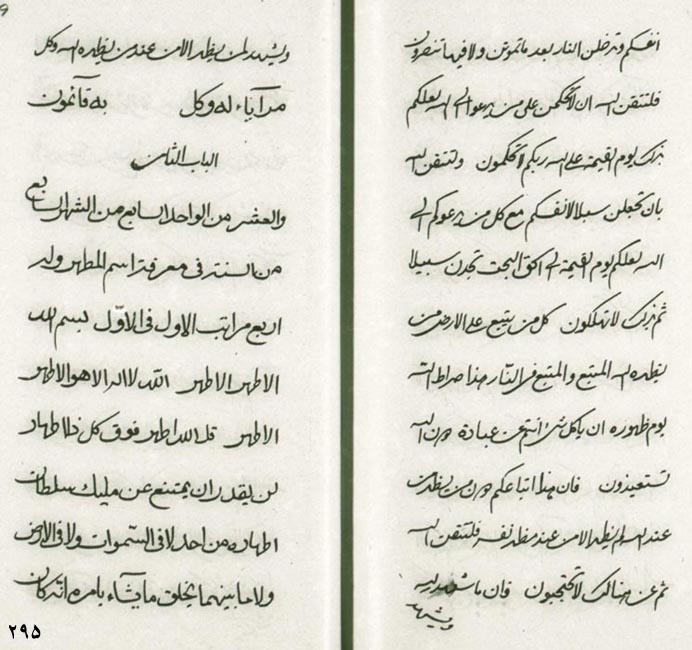 انفسكم وتدخلن النار بعد ماتموتن ولا فيها تنصرون
فلتتقن الله ان لا تحكمن على من يدعوا الى الله لعلكم
بذلك يوم القيمة على الله ربكم لا تحكمون ولتتقن الله
بان تجعلن سبيلا لانفسكم مع كل من يدعوكم الى
الله لعلكم يوم القيمة الى الحق تجدن سبيلا
ثم بذلك لا تهلكون كل من يتبع على الارض من
يظهره الله المتبع والمتبع فى النار هذا صراط الله
يوم ظهوره ان يا كل شئ انتم عن عبادة دون الله
تستعيذون فان هذا اتباعكم دون من يظهرن
عند الله لم يظهر الا من عند مظهر نفسه فلتتقن الله
ثم عن هنالك لا تحتجبون وان ما شهد الله
ويشهد
ويشهد لمن يظهر الا من عند من يظهره الله وكل
مرآياء له وكل به قآئمون
الباب الثامن
والعشر من الواحد السابع من الشهر السابع
من السنة فى معرفة اسم المطهر وله
اربع مراتب الاول فى الاوّل بسم الله
الاطهر الاطهر الله لا اله الا هو الاطهر
الاطهر قل الله اطهر فوق كل ذا اطهار
لن يقدر ان يمتنع عن مليك سلطان
اطهاره من احد لا فى السّموات ولا فى الارض
ولا ما بينهما يخلق ما يشآء بامره انه كان
٢٩۵